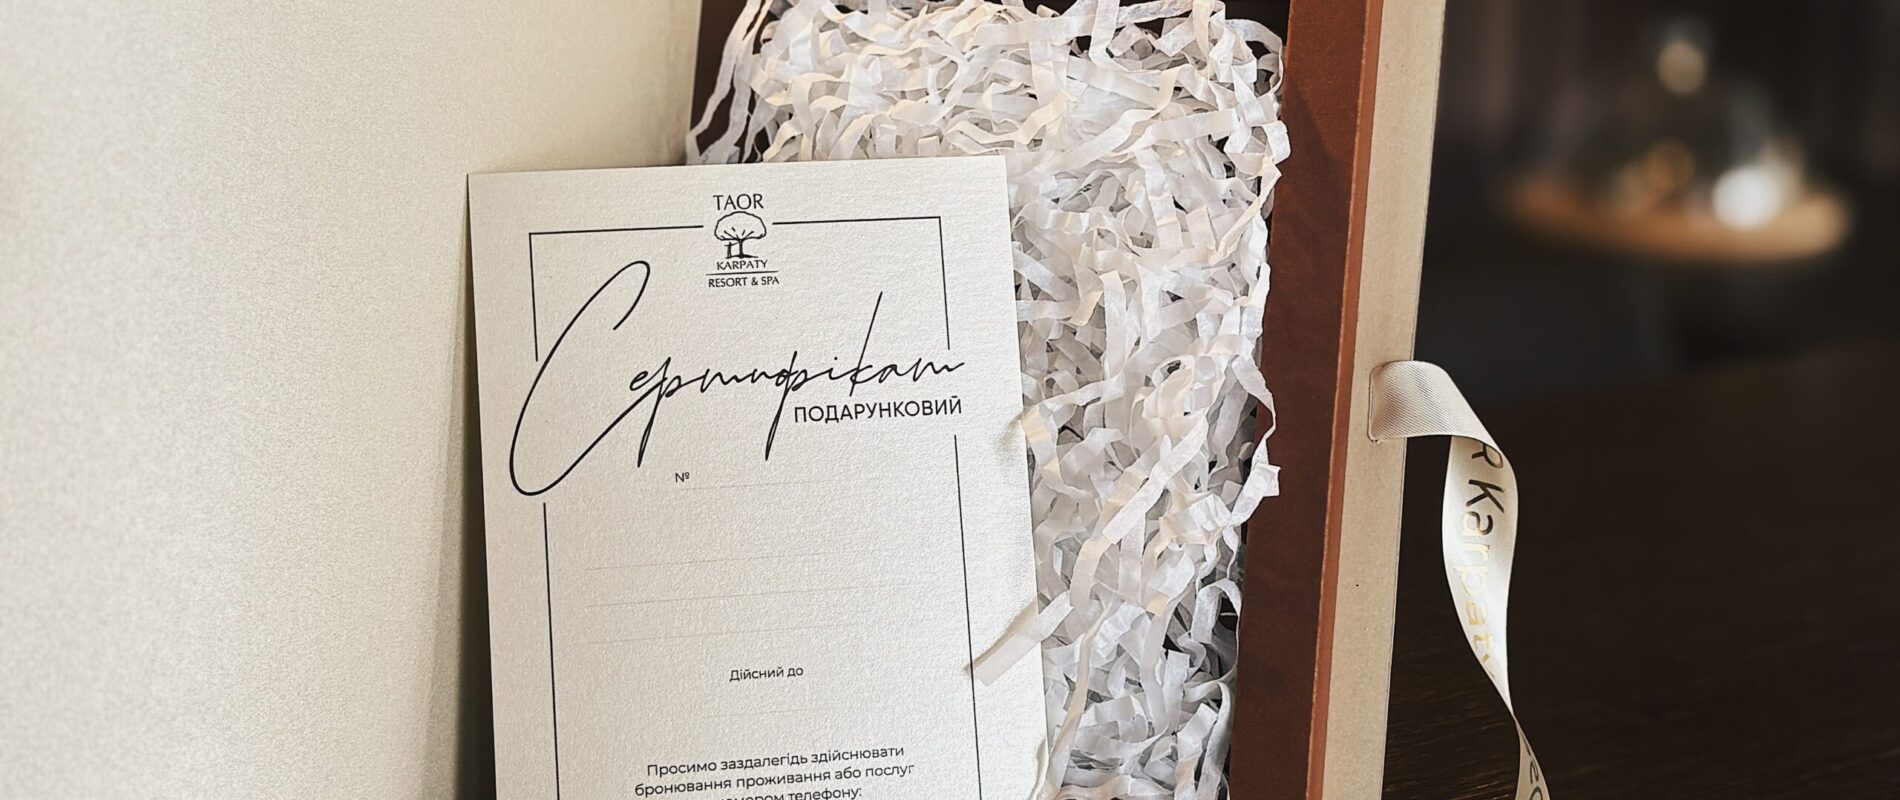 TAOR
KARPATY
RESORT & SPA
Сертифікат
ПОДАРУНКОВИЙ
№
Дійсний до
Просимо заздалегідь здійснювати
бронювання проживання або послуг
телефону:
R Karpaty